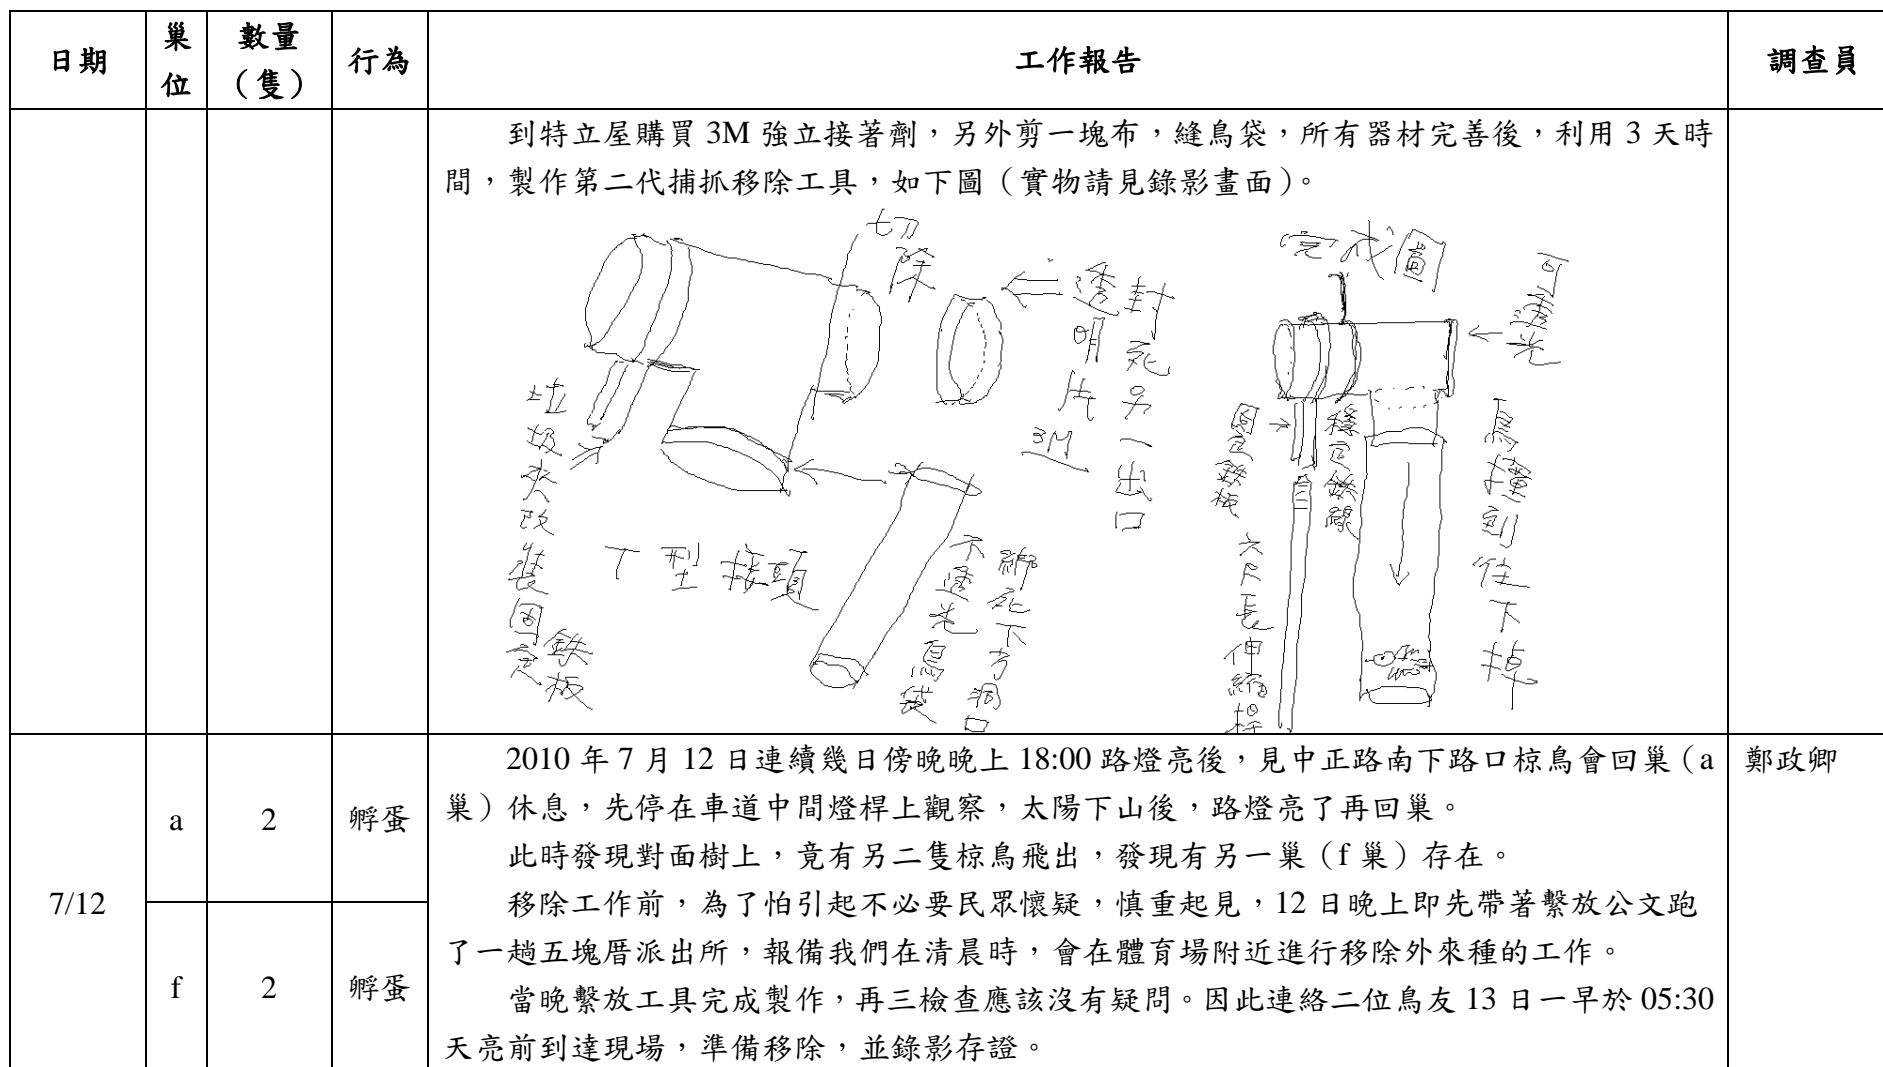 日期
巢位
數量（隻）
行為
工作報告
調查員
到特立屋購買 3M 強立接著劑，另外剪一塊布，縫鳥袋，所有器材完善後，利用 3 天時
間，製作第二代捕抓移除工具，如下圖（實物請見錄影畫面）。
切除
透明片
3M
封死另一出口
完成圖
可透光
垃圾夾改裝固定
鉄板
T型接頭
不透光鳥袋
綁死下方洞口
固定鉄板
穩定鉄線
六尺長伸縮桿
鳥撞到往下掉
7/12
a
2
孵蛋
2010 年 7 月 12 日連續幾日傍晚晚上 18:00 路燈亮後，見中正路南下路口椋鳥會回巢（a
巢）休息，先停在車道中間燈桿上觀察，太陽下山後，路燈亮了再回巢。
此時發現對面樹上，竟有另二隻椋鳥飛出，發現有另一巢（f 巢）存在。
f
2
孵蛋
移除工作前，為了怕引起不必要民眾懷疑，慎重起見，12 日晚上即先帶著繫放公文跑
了一趟五塊厝派出所，報備我們在清晨時，會在體育場附近進行移除外來種的工作。
當晚繫放工具完成製作，再三檢查應該沒有疑問。因此連絡二位鳥友 13 日一早於 05:30
天亮前到達現場，準備移除，並錄影存證。
鄭政卿